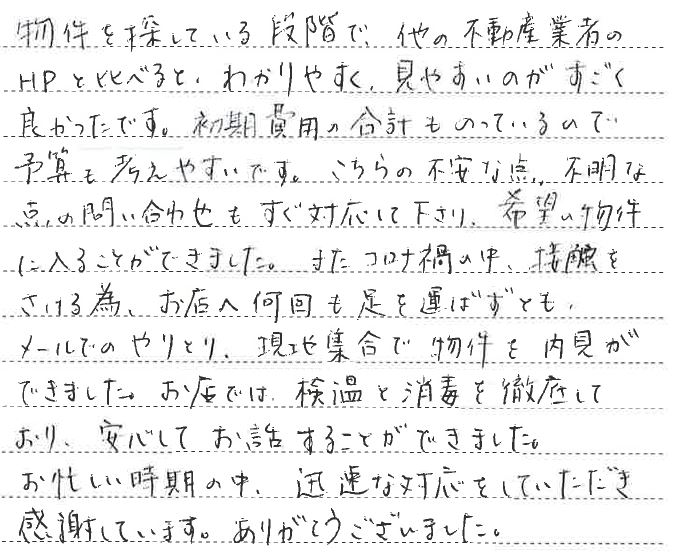 物件を探している段階で、他の不動産業者の
HPと比べると、わかりやすく、見やすいのがすごく
良かったです。初期費用の合計ものっているので
予算も考えやすいです。こちらの不安な点、不明な
点、の問い合わせもすぐ対応して下さり、希望の物件
に入ることができました。またコロナ禍の中、接触を
さける為、お店へ何回も足を運ばずとも、
メールでのやりとり、現地集合で物件を内見が
できました。お店では、検温と消毒を徹底して
おり、安心してお話することができました。
お忙しい時期の中、迅速な対応をしていただき
感謝しています。ありがとうございました。